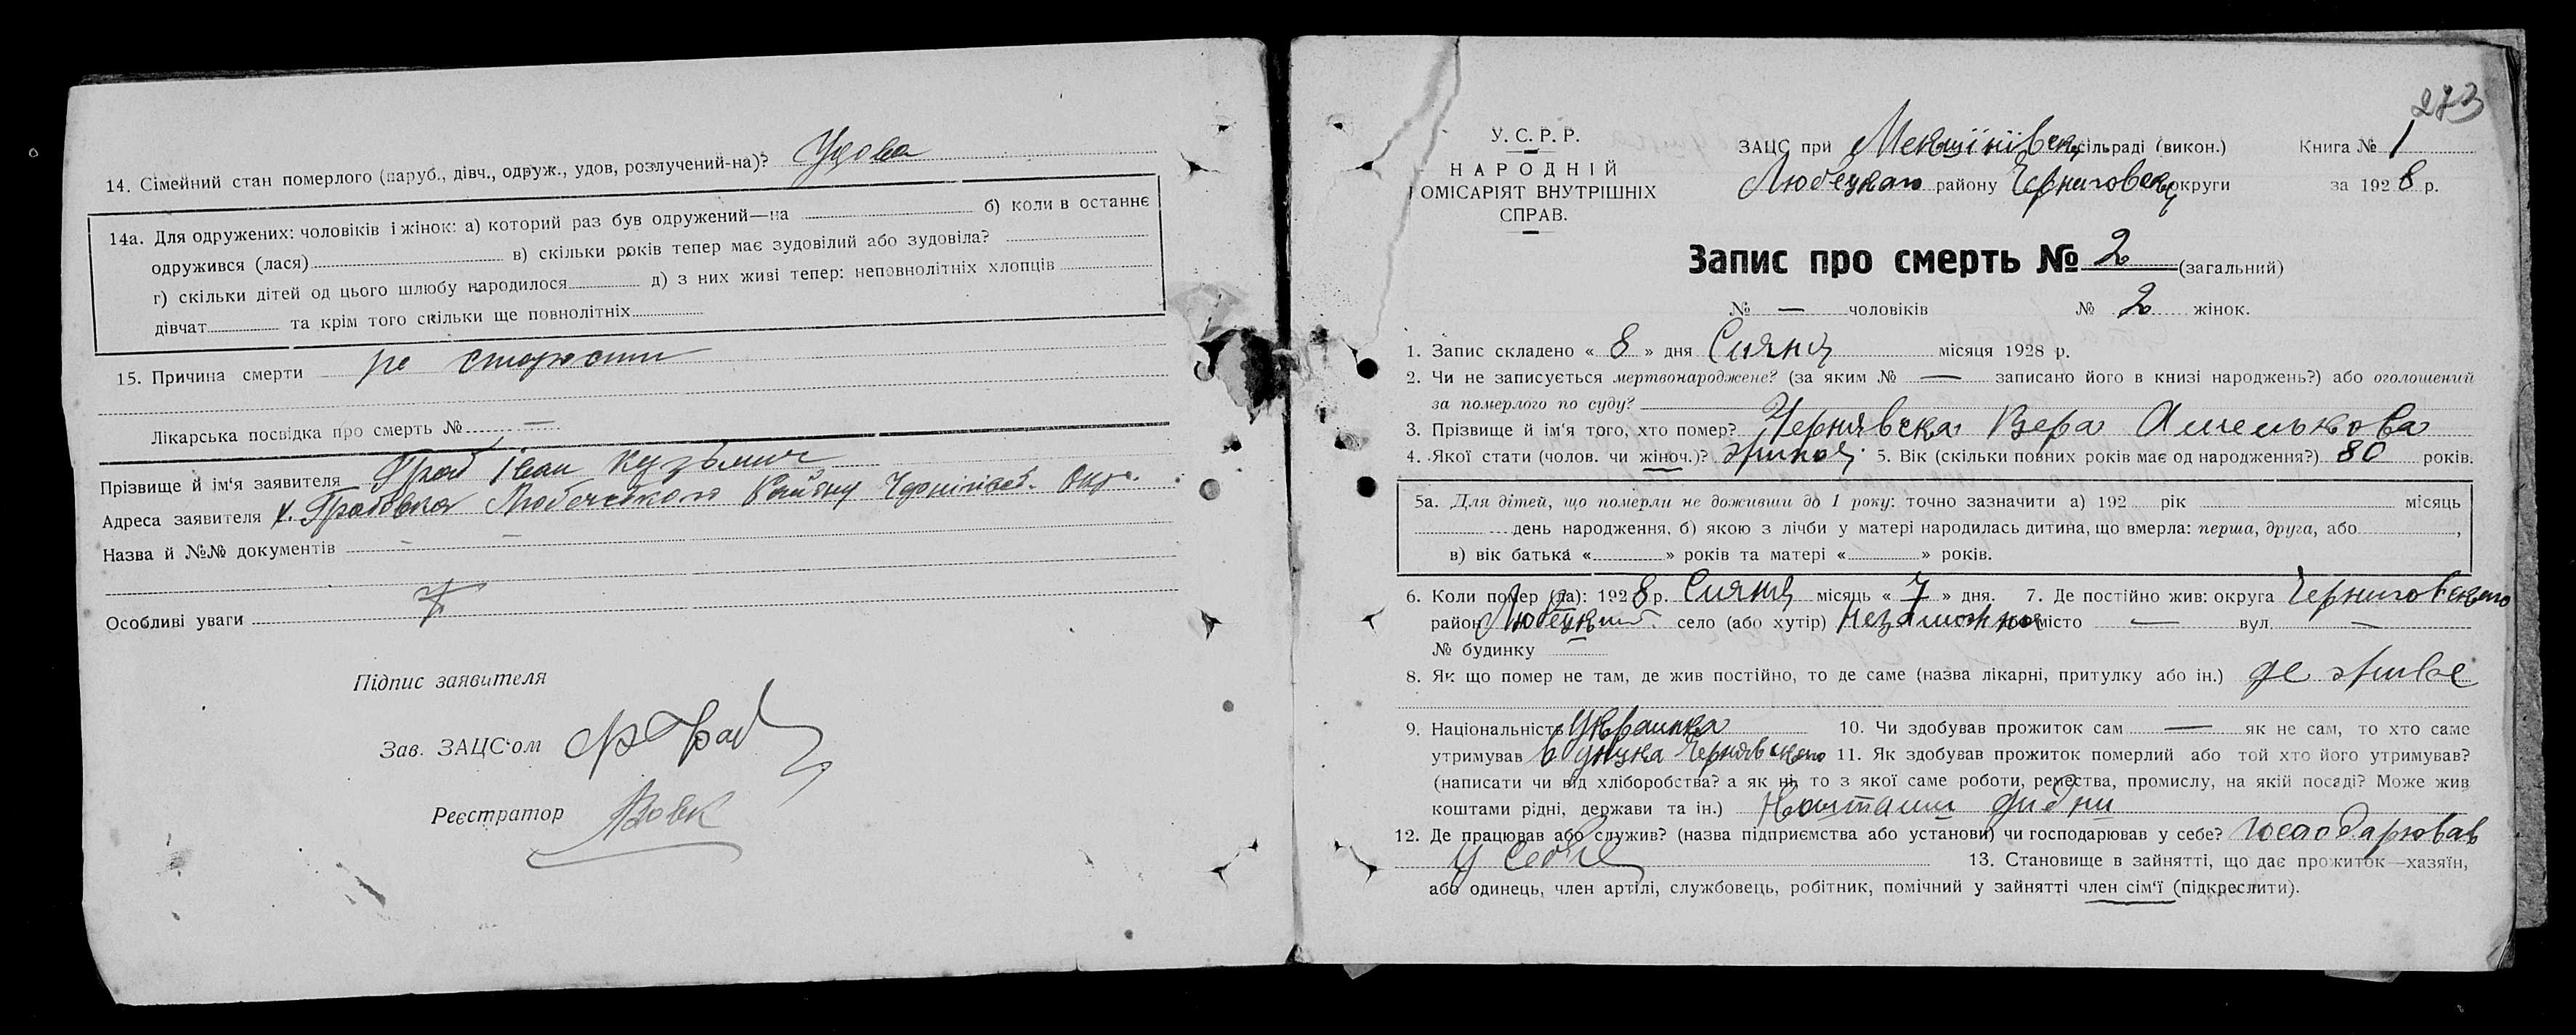 14. Сімейний стан померлого (паруб., дівч., одруж., удов, розлучений-на)? Удова
14а. Для одружених: чоловіків і жінок: а) которий раз був одружений—на б) коли в останнє
одружився (лася) в) скільки років тепер має зудовілий або зудовіла?
г) скільки дітей од цього шлюбу народилося д) з них живі тепер: неповнолітніх хлопців
дівчат та крім того скільки ще повнолітніх
15. Причина смерти старости
Лікарська посвідка про смерть № —
Прізвище й ім'я заявителя Граб Іван Кузьмич
Адреса заявителя х. Грабовка Любечського Району Чернігівсь. Окр.
Назва й №№ документів — —
Особливі уваги
Підпис заявителя
Зав. ЗАЦС'ом Граб
Реєстратор Вовк
273
У. С. Р. Р.
НАРОДНІЙ
ОМІСАРІЯТ ВНУТРІШНІХ
СПРАВ.
ЗАЦС при сільраді (викон.) Книга № 1
Любецкаго району Черниговськ округи за 1928 р.
Запис про смерть № 2 (загальний)
№ — чоловіків № 2 жінок.
1. Запис складено « 8 » дня Сичня місяця 1928 р.
2. Чи не записується мертвонароджене? (за яким № — записано його в книзі народжень?) або оголошений
за померлого по суду?
3. Прізвище й ім'я того, хто помер? Чернявска Вера Амелькова
4. Якої стати (чолов. чи жіноч.)? 5. Вік (скільки повних років має од народження?) 80 років.
5а. Для дітей, що померли не доживши до 1 року: точно зазначити а) 192 рік місяць
день народження, б) якою з лічби у матері народилась дитина, що вмерла: перша, друга, або ,
в) вік батька « » років та матері « » років.
6. Коли помер (ла): 1928 р. Сичня місяць « 7 » дня. 7. Де постійно жив: округа Черниговськаго
район Любецкий село (або хутір) Незаможня або місто — вул. —
№ будинку
8. Як що помер не там, де жив постійно, то де саме (назва лікарні, притулку або ін.) де живе
9. Національність Украинка 10. Чи здобував прожиток сам — як не сам, то хто саме
утримував унука Чернявского 11. Як здобував прожиток померлий або той хто його утримував?
(написати чи від хліборобства? а як ні, то з якої саме роботи, ремества, промислу, на якій посаді? Може жив
коштами рідні, держави та ін.) Коштами ридни
12. Де працював або служив? (назва підприємства або установи) чи господарював у себе? господарював
у себе 13. Становище в зайнятті, що дає прожиток—хазяїн,
або одинець, член артілі, службовець, робітник, помічний у зайнятті член сім'ї (підкреслити).